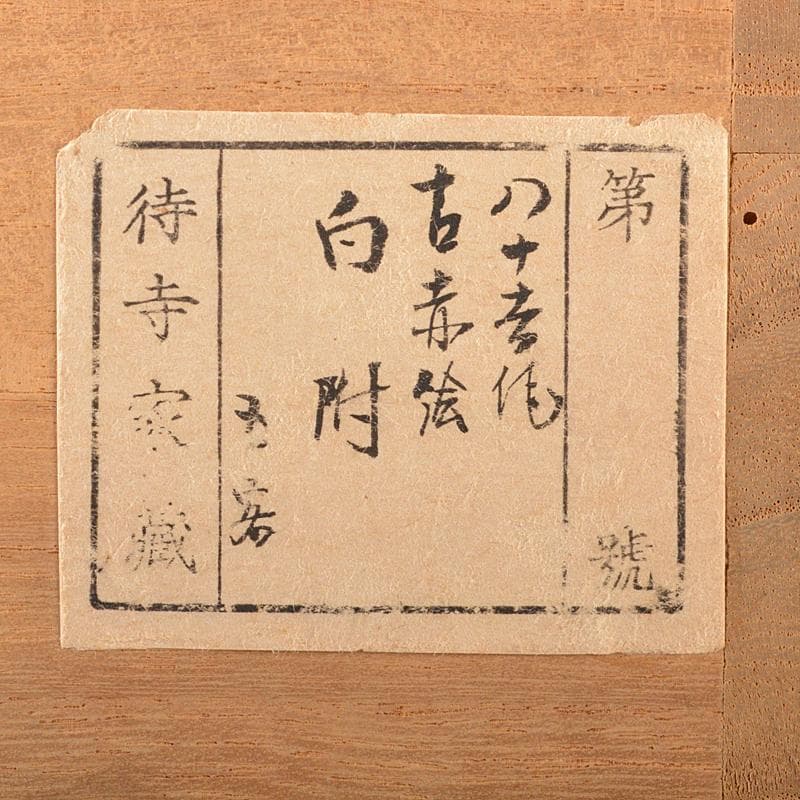 第 號
八十吉作
古赤絵
向附
五客
待寺家藏